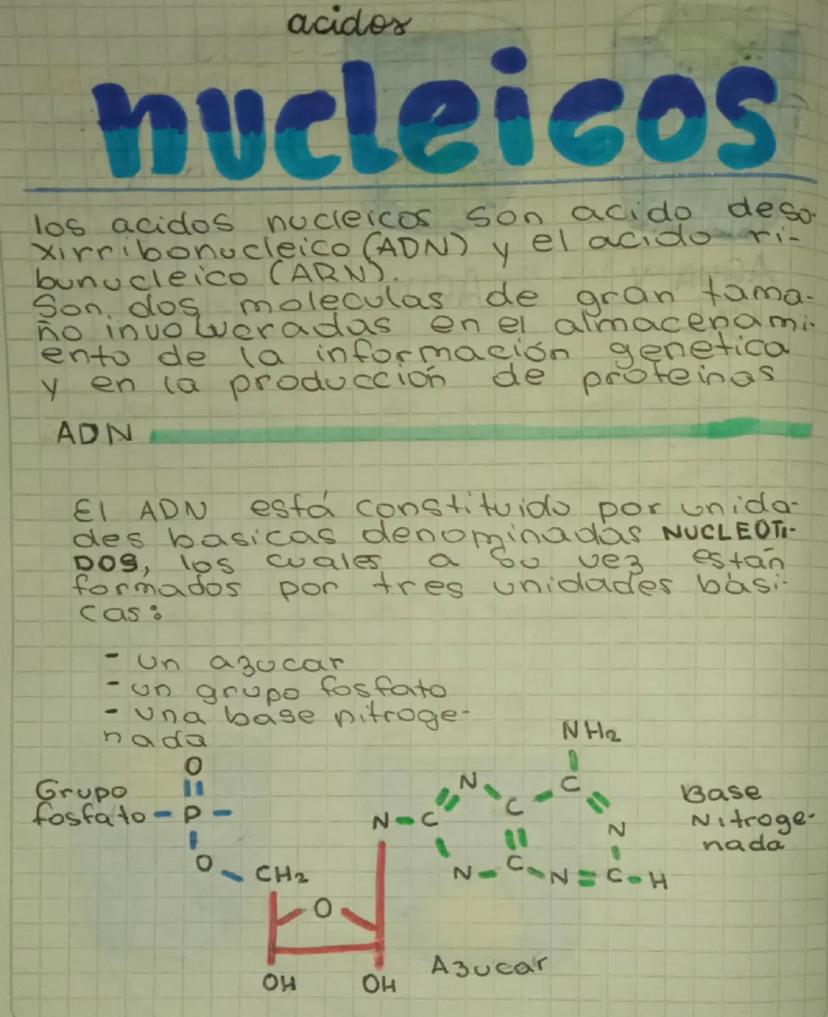 acidos
nucleicos
los acidos nucleicos son acido deso-
xirribonucleico (ADN) y el acido ri-
bunucleico (ARN).
Son dos moleculas de gran tama-
ño involucradas en el almacenami-
ento de la información genetica
y en la producción de proteinas
ADN
El ADN está constituido por unida-
des basicas denominadas NUCLEOTI-
DOS, los cuales a su vez están
formados por tres unidades bási-
cas:
- un azucar
- un grupo fosfato
- una base nitroge-
nada
NH2
O
Grupo
fosfato - P -
O
CH2
N - C
N
C
C
N
N - C - N = C - H
Base
Nitroge-
nada
O
OH
OH
Azucar